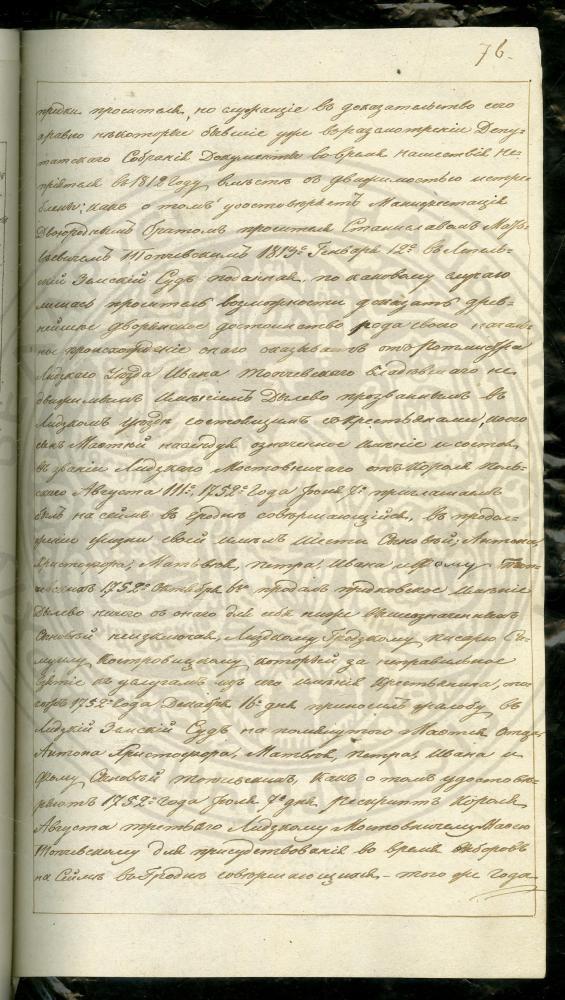 76.
предки просителя, но служащіе въ доказательство сего
а равно нѣкоторые бывшіе уже въ разсмотреніи Депу-
татскаго Собранія Документы во время нашествія не-
пріятеля въ 1812 году вмѣстѣ съ движимостью истре-
блены; какъ о томъ удостовѣряетъ Манифестація
Двоюроднымъ братомъ просителя Станиславомъ Матѳ-
евичемъ 1813го Генваря 12го въ
скій Земскій Судъ поданная, по каковому случаю
лишась проситель возможности доказать древ-
нѣйшее дворянское достоинство рода своего начал-
ное происхожденіе онаго оказываетъ отъ Ротмистра
Лидзкаго Уѣзда Ивана владѣвшаго не-
движимымъ имѣніемъ Дылево прозваннымъ въ
Лидзкомъ уѣздѣ состоящимъ съ крестьянами, коего
сынъ Маттей наслѣдуя означенное имѣніе и состоя
въ званіи Лидзкаго Мостовничаго отъ Короля Поль-
скаго Августа III го, 1752го Года Іюня 7го приглашаемъ
былъ на сеймъ въ Гроднѣ совершающійся, въ продол-
женіе жизни своей имѣлъ шести Сыновей; Антона,
Христофора, Матвѣя, Петра, Ивана и Ѳому
1752го Октября продалъ предковское имѣніе
Дылево ничего съ онаго для нихъ выше означенныхъ
Сыновей неизключая, Лидзкому Гродзкому писарю
Костровицкому который за неправильное
взятіе къ услугамъ изъ его имѣнія крестьянина, то-
гожъ 1752го Года Декабря 16го дня приноситъ жалобу въ
Лидзкій Земскій Судъ на помянутаго Маттея отца,
Антона Христофора, Матвѣя, Петра, Ивана и
Ѳому Сыновей какъ о томъ удостовѣ-
ряютъ 1752го Года Іюня 7го дня, Рескриптъ Короля
Августа третьяго Лидзкому Мостовничему Маттею
для присудствованія во время выборовъ
на Сеймъ въ Гроднѣ совершающимся – того же года